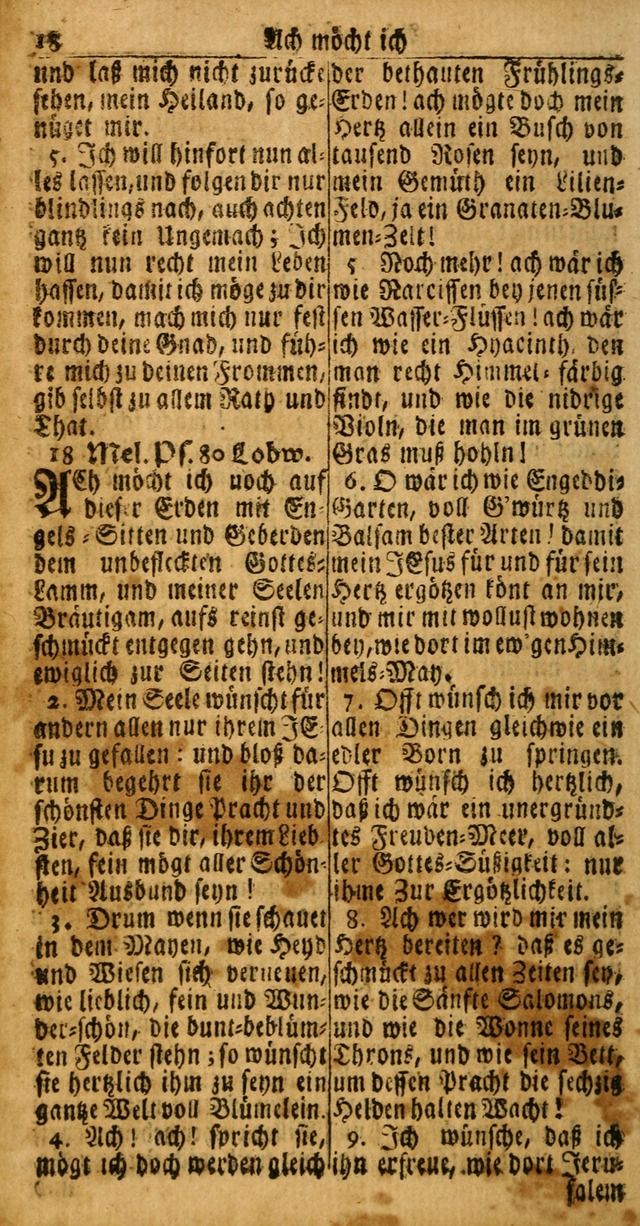 18 Ach möcht ich
und laß mich nicht zurücke
sehen, mein Heiland, so ge-
nüget mir.
5. Ich will hinfort nun al-
les lassen, und folgen dir nur
blindlings nach, auch achten
gantz kein Ungemach; Ich
will nun recht mein Leben
hassen, damit ich möge zu dir
kommen, mach mich nur fest
durch deine Gnad, und füh-
re mich zu deinen Frommen,
gib selbst zu allem Rath und
That.
18 Mel. Ps. 80 Lobw.
ACh möcht ich noch auf
dieser Erden mit En-
gels-Sitten und Geberden
dem unbefleckten Gottes-
Lamm, und meiner Seelen
Bräutigam, aufs reinst ge-
schmückt entgegen gehn, und
ewiglich zur Seiten stehn!
2. Mein Seele wünscht für
andern allen nur ihrem JE-
su zu gefallen: und bloß da-
rum begehrt sie ihr der
schönsten Dinge Pracht und
Zier, daß sie dir, ihrem Lieb
sten, fein mögt aller Schön-
heit Ausbund seyn!
3. Drum wenn sie schauet
in dem Mayen, wie Heyd
und Wiesen sich verneuen,
wie lieblich, fein und Wun-
der-schön, die bunt-beblüm-
ten Felder stehn; so wünscht
sie hertzlich ihm zu seyn ein
gantze Welt voll Blümelein.
4. Ach! ach! spricht sie,
mögt ich doch werden gleich
der bethauten Frühlings-
Erden! ach mögte doch mein
Hertz allein ein Busch von
tausend Rosen seyn, und
mein Gemüth ein Lilien-
Feld, ja ein Granaten-Blu-
men-Zelt!
5 Noch mehr! ach wär ich
wie Narcissen bey jenen süs-
sen Wasser-Flüssen! ach wär
ich wie ein Hyacinth, den
man recht Himmel-färbig
findt, und wie die nidrige
Violn, die man im grünen
Gras muß hohln!
6. O wär ich wie Engeddi-
Garten, voll G'würtz und
Balsam bester Arten! damit
mein JEsus für und für sein
Hertz ergötzen könt an mir,
und mir mit wollust wohnen
bey, wie dort im ew'gen Him-
mels-May.
7. Offt wünsch ich mir vor
allen Dingen gleichwie ein
edler Born zu springen.
Offt wünsch ich hertzlich,
daß ich wär ein unergründ-
tes Freuden-Meer, voll al-
ler Gottes-Süßigkeit: nur
ihme Zur Ergötzlichkeit.
8. Ach wer wird mir mein
Hertz bereiten? daß es ge-
schmückt zu allen Zeiten sey,
wie die Sänfte Salomons,
und wie die Wonne seines
Throns, und wie sein Bett,
um dessen Pracht die sechzig
Helden halten Wacht!
9. Ich wünsche, daß ich
ihn erfreue, wie dort Jeru-
salem